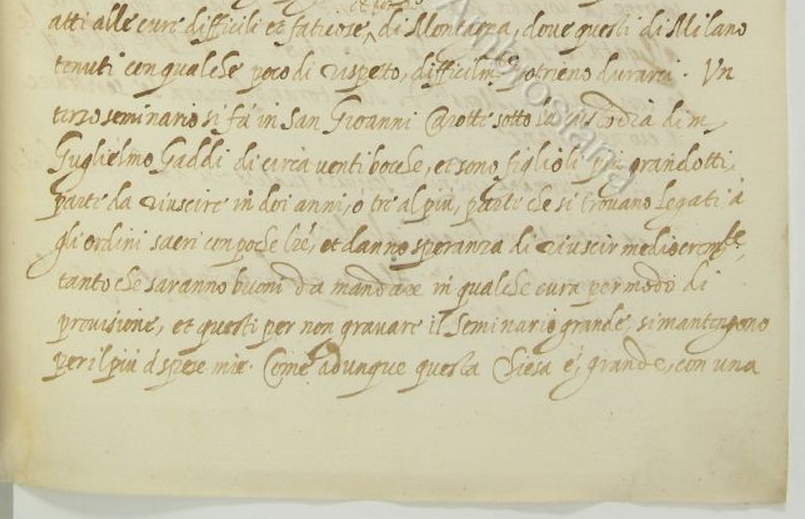 atti alle cure difficili et faticose, di Montagna, dove questi di Milano
tenuti con qualche poco di rispetto, difficilm.te potrieno durarci. Un
terzo seminario si fa in San Gioanni sotto la custodia di m.
Guglielmo Gaddi di circa venti boche, et sono figlioli più grandotti,
parte da riuscire in doi anni, o tre al più, parte che si trovano legati à
gli ordini sacri con poche lrẽ, et danno speranza di riuscir mediocremte,
tanto che saranno buoni da mandare in qualche cura per modo di
provisione, et questi per non gravare il seminario grande, si mantengono
per il più a spese mie. Come adunque questa Chiesa è, grande, con una
Ambrosiana